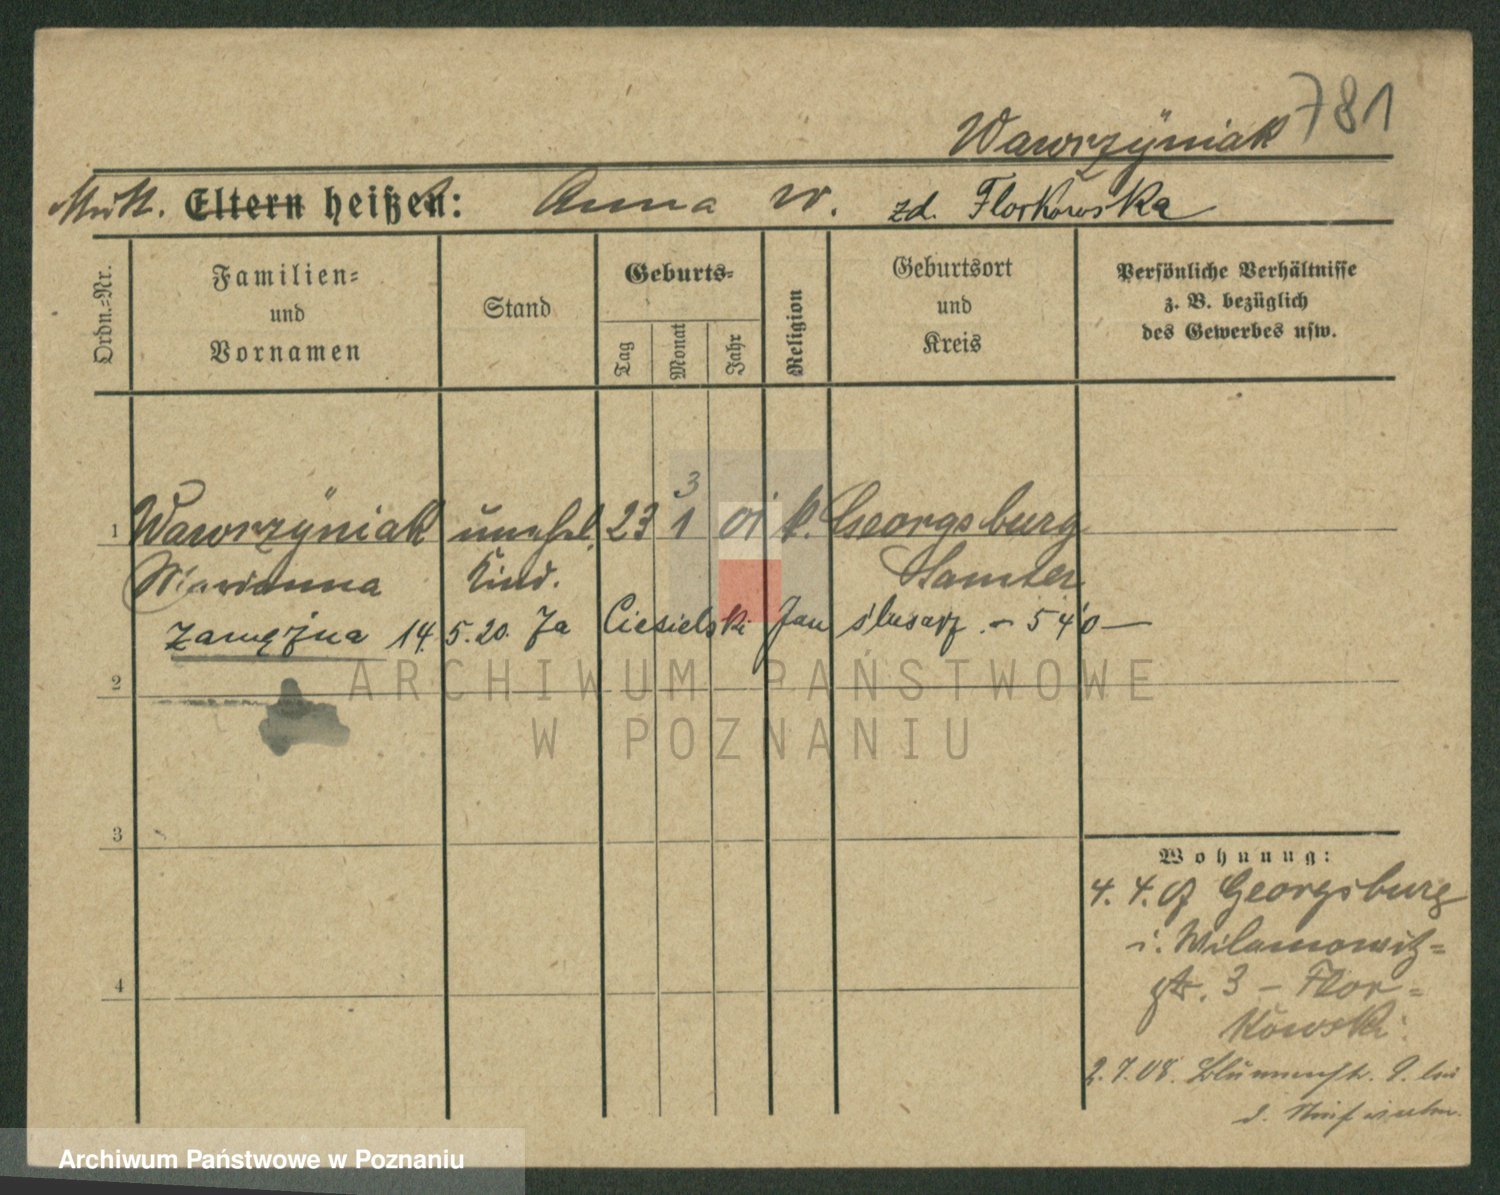 781
Wawrzÿniak
Mutt. Eltern heißen: Anna W. zd. Florkowska
Ordn.=Nr.
Familien=
und
Vornamen
Stand
Geburts=
Tag
Monat
Jahr
Religion
Geburtsort
und
Kreis
Persönliche Verhältnisse
z. B. bezüglich
des Gewerbes usw.
3
1 Wawrzÿniak unehel. 23 1 01 k. Georgsburg
Marianna Kind. Samter
zamężna 14.5.20. Ja Ciesielski Jan ślusarz. - 540 -
2
3
4
Wohnung:
4. 4. 07 Georgsburg
i. Wilamowitz=
str. 3 - Flor=
kowski.
2.7.08. Blumenstr. 9. bei
d.
ARCHIWUM PAŃSTWOWE
W POZNANIU
Archiwum Państwowe w Poznaniu